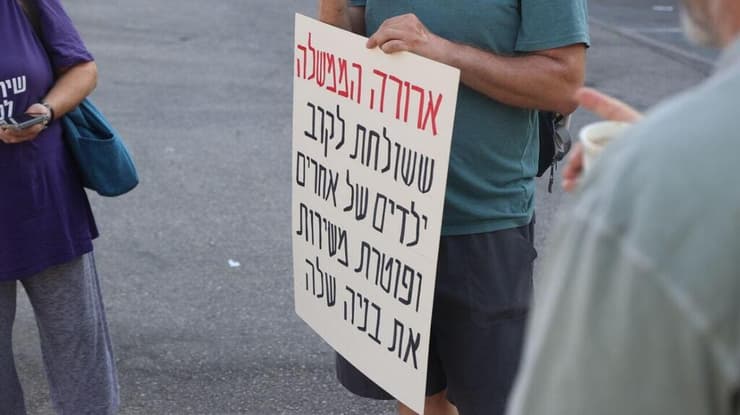 ארורה הממשלה
ששולחת לקרב
ילדים של אחרים
ופוטרת משירות
את בניה שלה